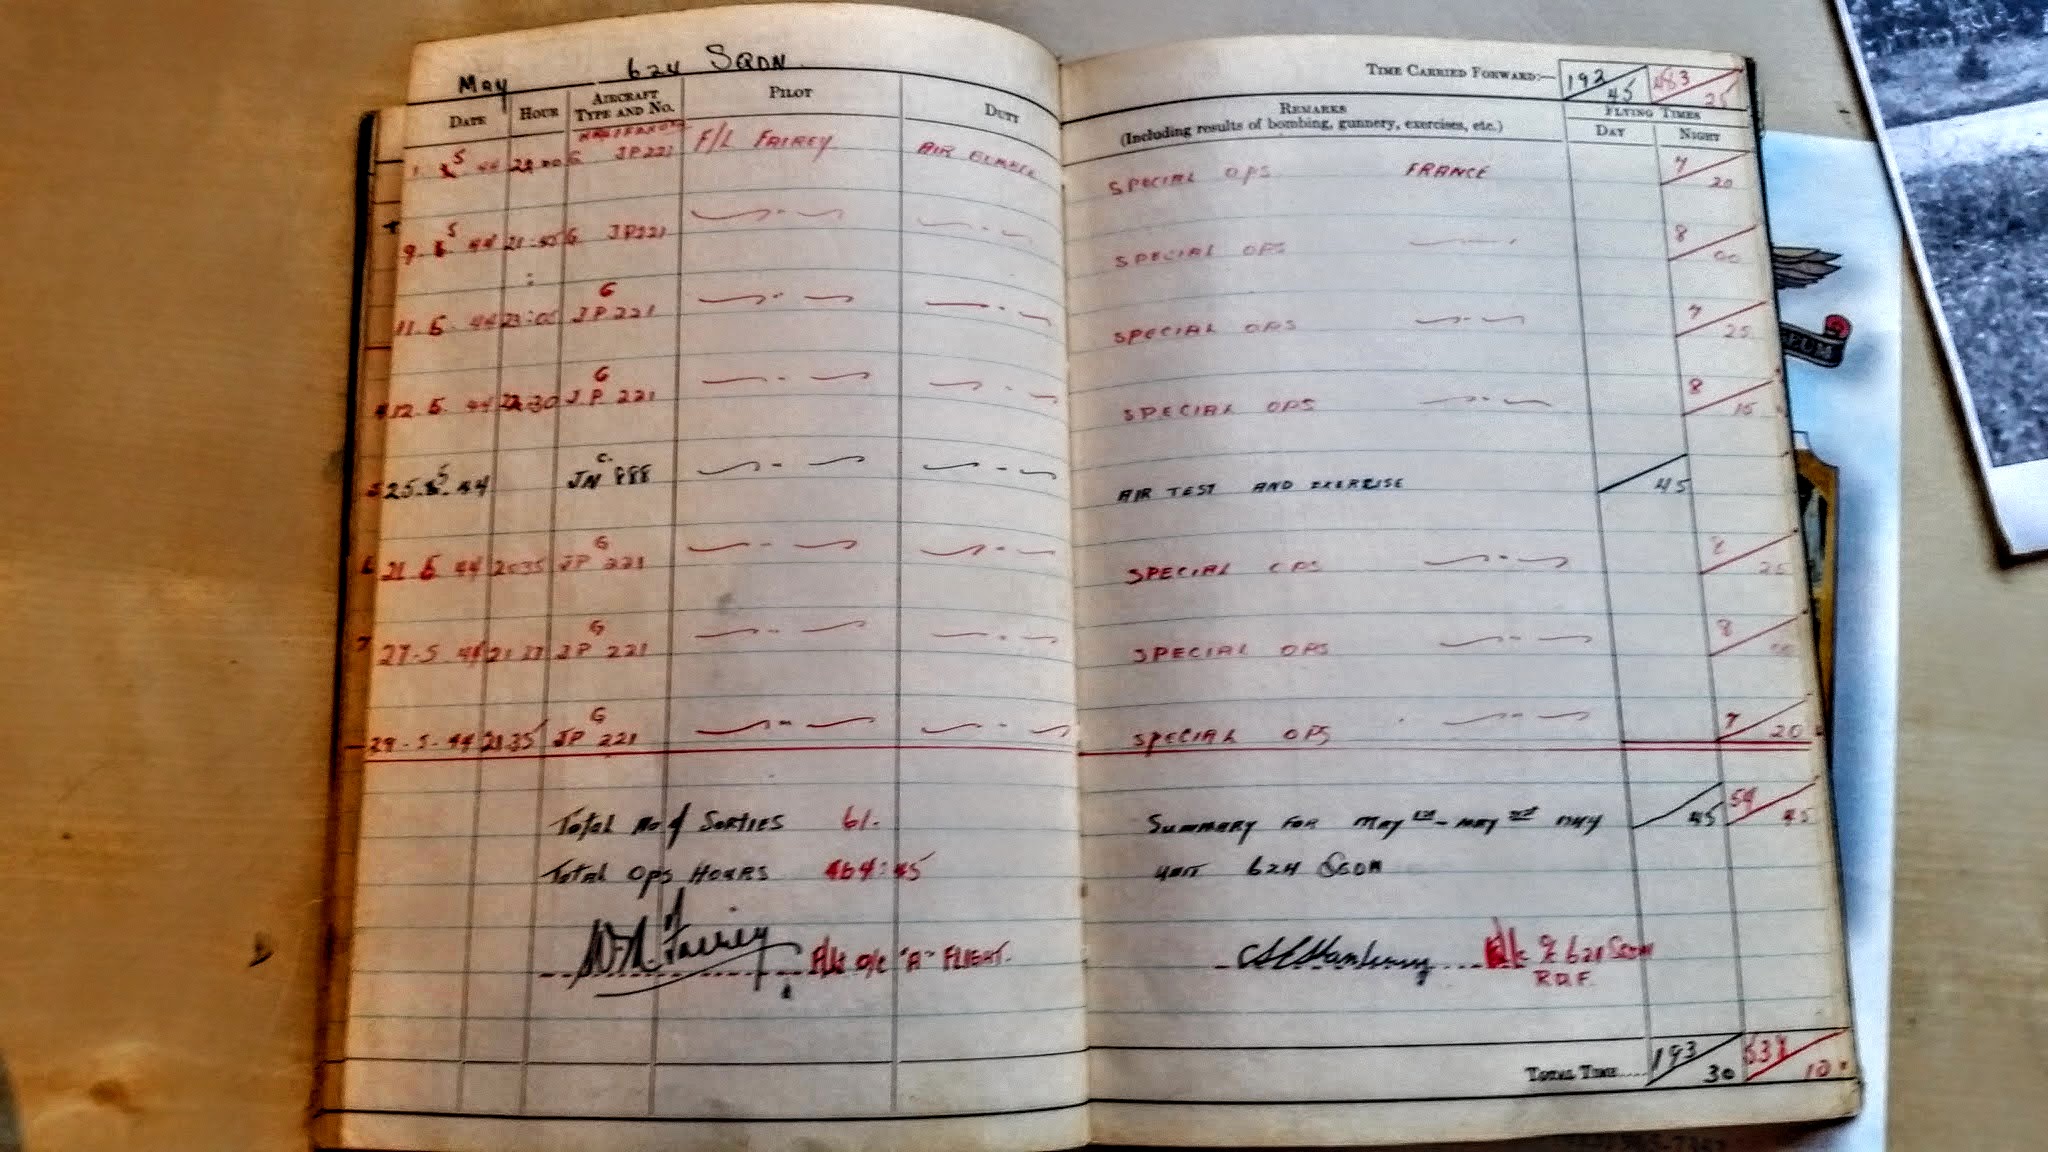 May 624 SQDN.
DATE HOUR AIRCRAFT TYPE AND NO. PILOT DUTY
TIME CARRIED FORWARD:— 192 45 483 25
REMARKS
(Including results of bombing, gunnery, exercises, etc.)
FLYING TIMES
DAY NIGHT
1. 5 44 G JP221 F/L FAIREY AIR SPECIAL OPS FRANCE 7 20
9. 5 44 21.45 G JP221 SPECIAL OPS 8 00
11. 5. 44 23:05 G JP 221 SPECIAL OPS 7 25
12. 5. 44 22.30 G JP 221 SPECIAL OPS 8 15
25.5.44 C. JN 888 AIR TEST AND EXERCISE 45
21 5 44 G JP 221 SPECIAL OPS 25
27.5 44 G JP 221 SPECIAL OPS 8
29.5.44 21 35 G JP 221 SPECIAL OPS 7 20
Total No of SORTIES 61.
SUMMARY FOR MAY 1st - MAY 1944 45 54 45
Total OPS HOURS 464:45
UNIT 624 SQDN
Fairey F/Lt o/c "A" FLIGHT.
o/c 624 SQDN
R.A.F.
TOTAL TIME 193 30 538 10
EUM